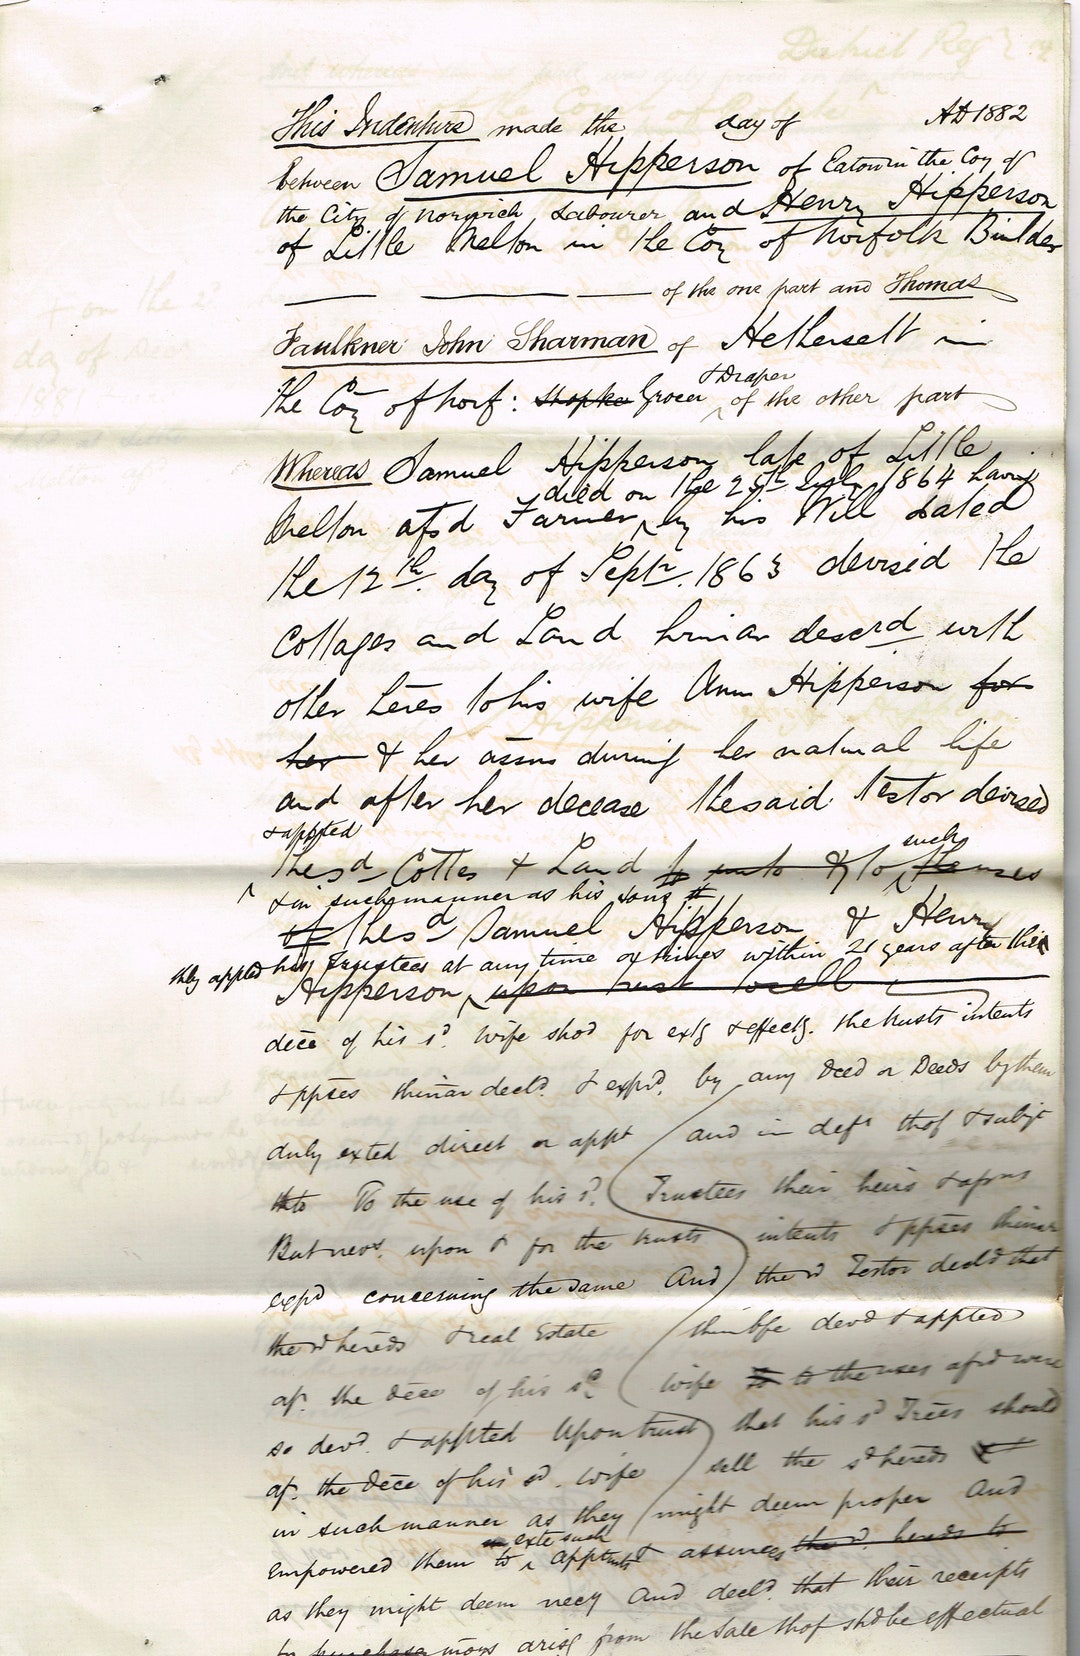 This Indenture made the day of AD 1882
between Samuel Hipperson of Eaton in the Coy of
the City of Norwich, Labourer and Henry Hipperson
of Little Melton in the Coy of Norfolk Builder
of the one part and Thomas
Faulkner John Sharman of Hethersett in
& Draper
the Coy of Norf: Shopke Grocer of the other part
Whereas Samuel Hipperson late of Little
died on the 25th July 1864 having
Melton afsd Farmer, by his Will dated
the 12th day of Septr. 1863 devised the
Cottages and Land hrinar descrd with
other heres to his wife Ann Hipperson for
her & her assns during her natural life
and after her decease the said Testor devised
& appted
such
the sd Cottes & Land to unto & to the uses
& in such manner as his sons
of the sd Samuel Hipperson & Henry
they appted his Trustees at any time or times within 21 years after the
Hipperson, upon trust to sell
dece of his sd wife shod for exts & effects. the trusts intents
& ppses thinar decld. & expd. by any Deed or Deeds by them
duly exted direct or appt and in deft thof & subjt
thto To the use of his sd. Trustees their heirs & assns
But nevs. upon & for the trusts intents & ppses thinar
expd concerning the same And the sd Testor decld that
the sd hereds & real Estate thinbfe devd & appted
af. the dece of his sd wife to to the uses afsd were
so devd. & appted Upon trust that his sd Trees should
af. the dece of his sd. wife sell the sd hereds
in such manner as they might deem proper And
exte such
empowered them to apptmts & assurces the sd. hereds to
as they might deem necy And decld. that their receipts
to purchase mons arisg from the Sale thof shd be effectual